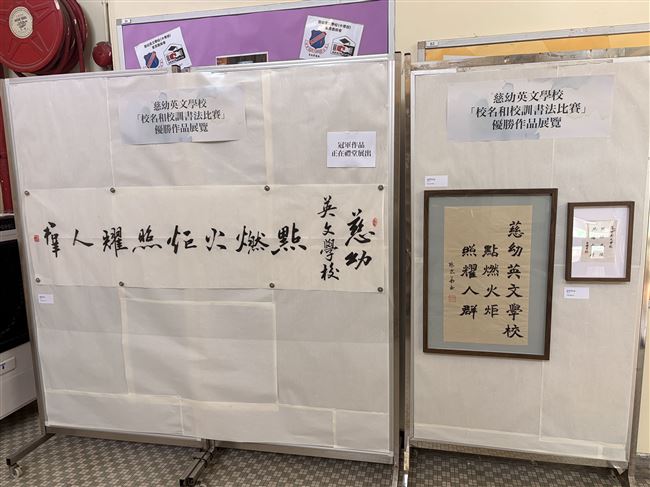 慈幼英文學校
「校名和校訓書法比賽」
優勝作品展覽
冠軍作品
正在禮堂展出
慈幼
英文學校
點燃火炬照耀人羣
慈幼英文學校
「校名和校訓書法比賽」
優勝作品展覽
慈幼英文學校
點燃火炬
照耀人群